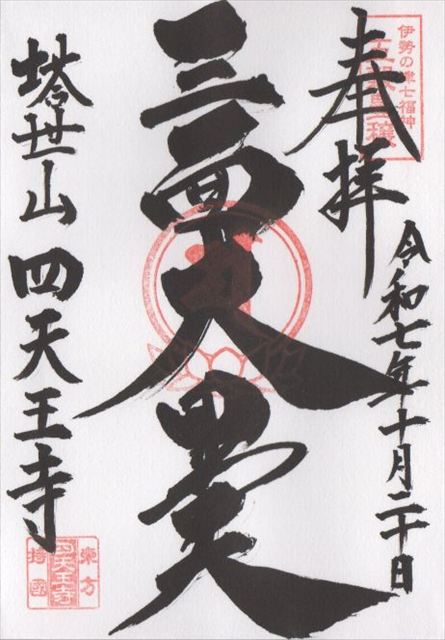 伊勢の津七福神
奉拝
令和七年十月二十日
三面大黒
塔世山四天王寺
東方
四天王寺
持国